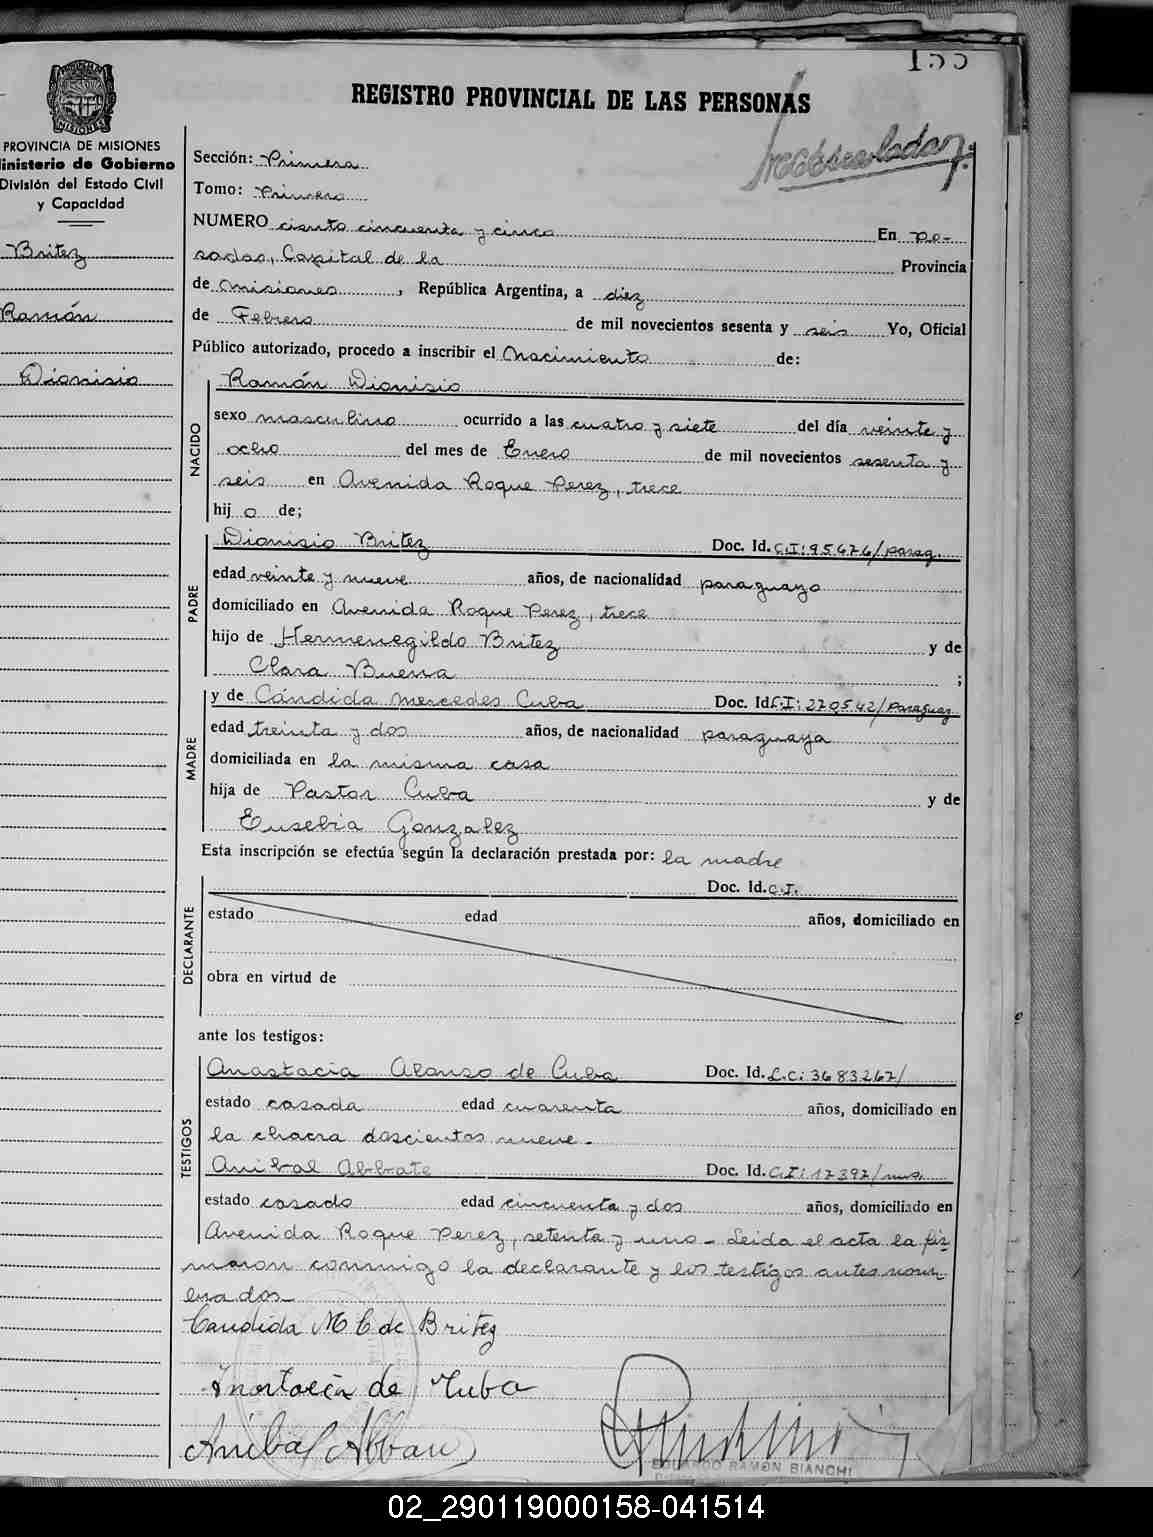 155
REGISTRO PROVINCIAL DE LAS PERSONAS
PROVINCIA DE MISIONES
Ministerio de Gobierno
División del Estado Civil
y Capacidad
Britez
Ramón
Dionisio
Sección: Primera
Tomo: Primero
NUMERO ciento cincuenta y cinco En Po-
sadas, Capital de la Provincia
de Misiones, República Argentina, a diez
de Febrero de mil novecientos sesenta y seis Yo, Oficial
Público autorizado, procedo a inscribir el Nacimiento de:
NACIDO
Ramón Dionisio
sexo masculino ocurrido a las cuatro y siete del día veinte y
ocho del mes de Enero de mil novecientos sesenta y
seis en Avenida Roque Perez, trece
hijo de;
PADRE
Dionisio Britez Doc. Id. C.I: 95474/parag.
edad veinte y nueve años, de nacionalidad paraguayo
domiciliado en Avenida Roque Perez, trece
hijo de Hermenegildo Britez y de
Clara Buena ;
MADRE
y de Cándida Mercedes Cuba Doc. Id. C.I: 270542/Paraguay
edad treinta y dos años, de nacionalidad paraguaya
domiciliada en la misma casa
hija de Pastor Cuba y de
Eusebia Gonzalez
Esta inscripción se efectúa según la declaración prestada por: la madre
DECLARANTE
Doc. Id. C.I.
estado edad años, domiciliado en
obra en virtud de
ante los testigos:
TESTIGOS
Anastacia Alonso de Cuba Doc. Id. L.C: 3683267/
estado casada edad cuarenta años, domiciliado en
la chacra doscientos nueve.
Anibal Abbate Doc. Id. C.I: 17397/mnes.
estado casado edad cincuenta y dos años, domiciliado en
Avenida Roque Perez, setenta y uno - Leida el acta la fir-
maron conmigo la declarante y los testigos antes nom-
brados
Candida M C de Britez
de Cuba
Anibal
EDUARDO RAMON BIANCHI
02_290119000158-041514